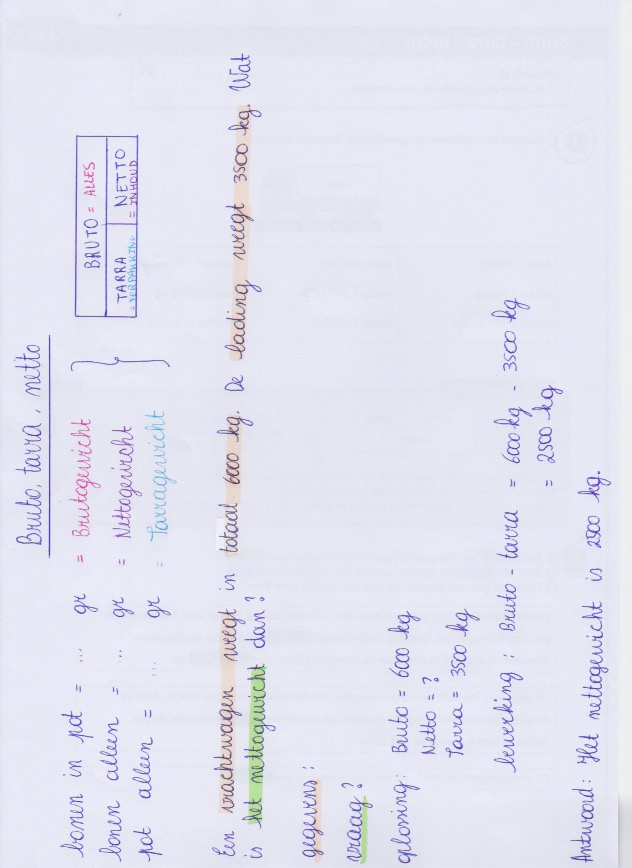 Bruto, tarra, netto
bonen in pot = ... gr = Brutogewicht
bonen alleen = ... gr = Nettogewicht
pot alleen = ... gr = Tarragewicht
BRUTO = ALLES
TARRA
= VERPAKKING
NETTO
= INHOUD
Een vrachtwagen weegt in totaal 6000 kg. De lading weegt 3500 kg. Wat
is het nettogewicht dan?
gegevens:
vraag?
oplossing: Bruto = 6000 kg
Netto = ?
Tarra = 3500 kg
bewerking: Bruto - tarra = 6000 kg - 3500 kg
= 2500 kg
Antwoord: Het nettogewicht is 2500 kg.